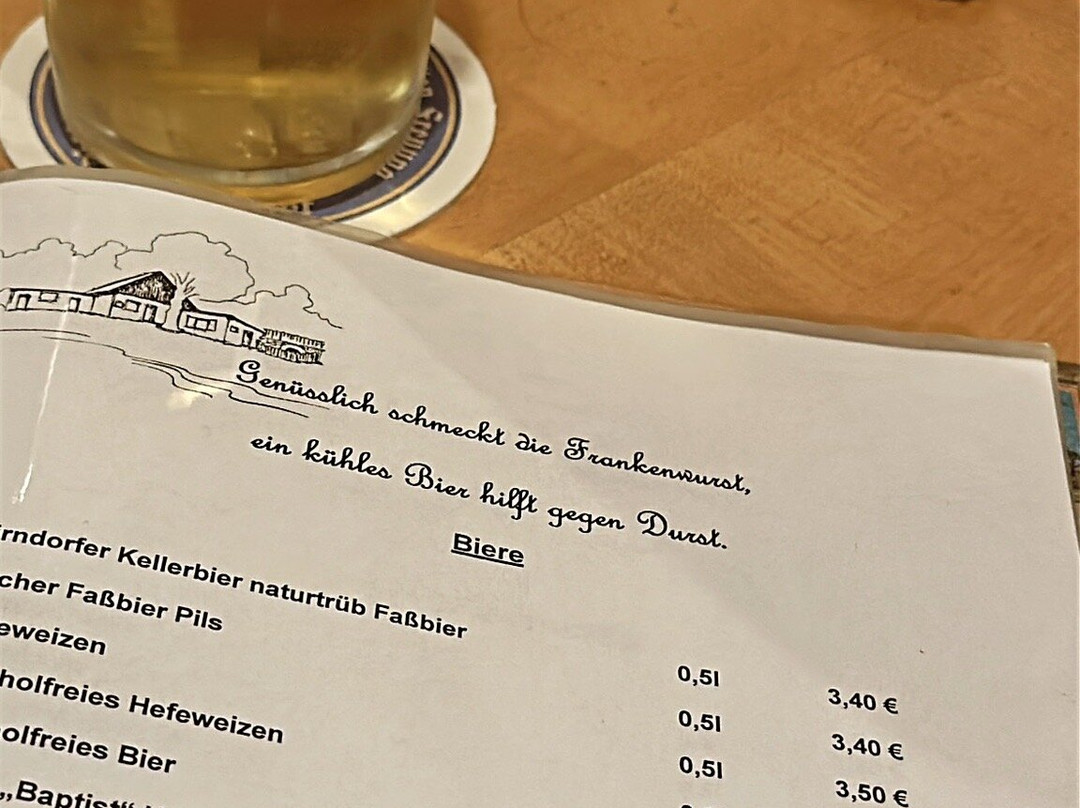 Genüsslich schmeckt die Frankenwurst,
ein kühles Bier hilft gegen Durst.
Biere
rndorfer Kellerbier naturtrüb Faßbier 0,5l 3,40 €
cher Faßbier Pils 0,5l 3,40 €
eweizen 0,5l 3,50 €
holfreies Hefeweizen
olfreies Bier
„Baptist“